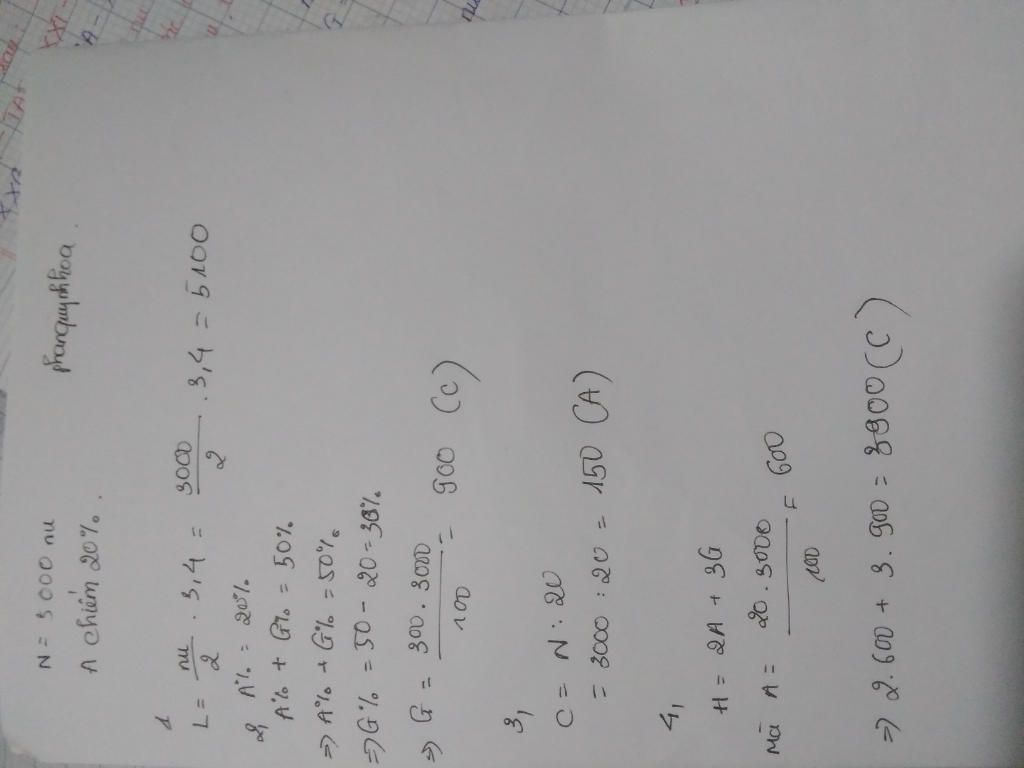 N = 3000 nu
phanquynhhoa.
A chiếm 20%.
1
L = nu/2 . 3,4 = 3000/2 . 3,4 = 5100
2, A% = 20%
A% + G% = 50%
=> A% + G% = 50%
=> G% = 50 - 20 = 30%
=> G = 300 . 3000/100 = 900 (C)
3,
C = N : 20
= 3000 : 20 = 150 (A)
4,
H = 2A + 3G
mà A = 20 . 3000/100 = 600
=> 2.600 + 3.900 = 3900 (C)